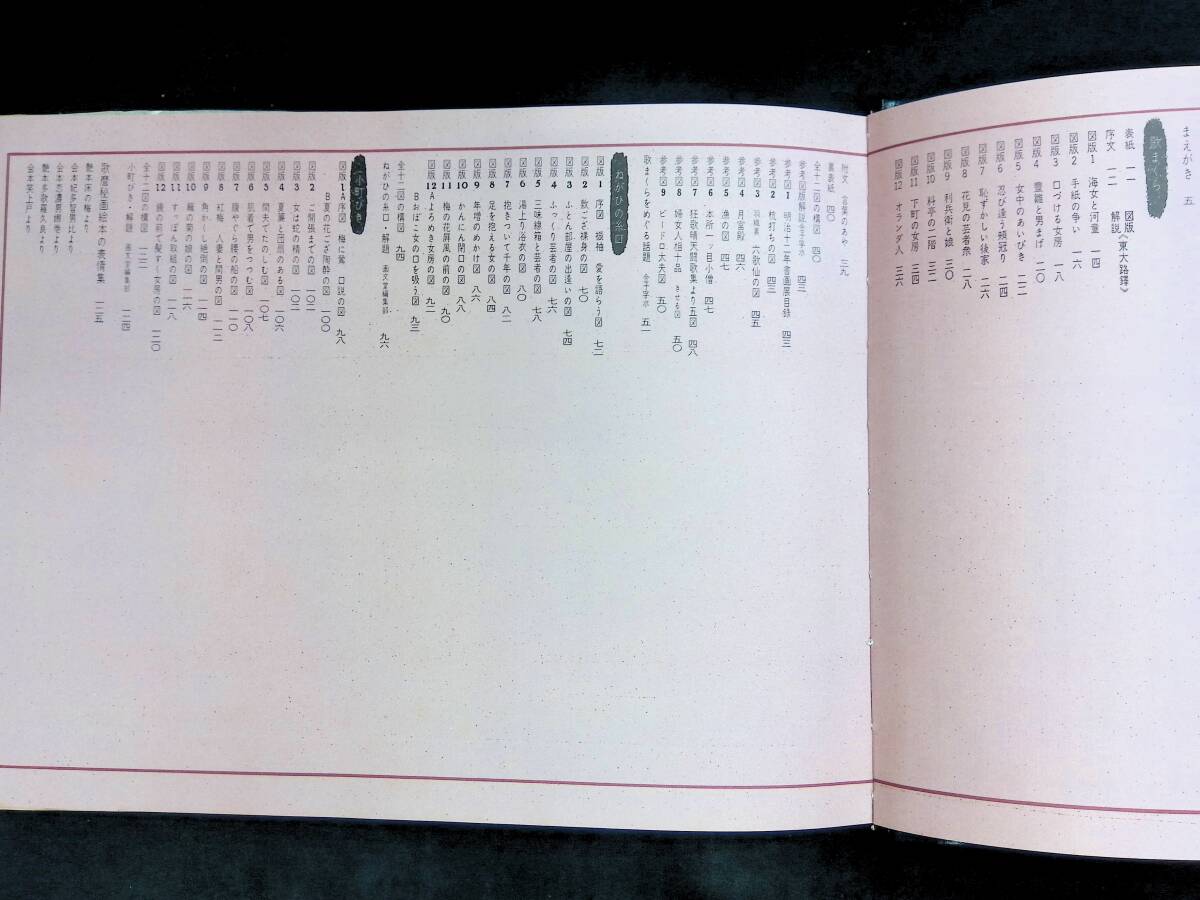 まえがき 五
歌まくら
図版《東大路鐸》
解説
表紙 一一
序文 一二
図版1 海女と河童 一四
図版2 手紙の争い 一六
図版3 口づける女房 一八
図版4 豊雛と男まげ 二〇
図版5 女中のあいびき 二二
図版6 忍び逢う頰冠り 二四
図版7 恥ずかしい後家 二六
図版8 花見の芸者衆 二八
図版9 利兵衛と娘 三〇
図版10 料亭の二階 三二
図版11 下町の女房 三四
図版12 オランダ人 三六
附文 言葉のあや 三九
裏表紙 四〇
全十二図の構図 四〇
参考図版解説 金子孚水 四三
参考図1 明治十二年書画展目録 四三
参考図2 杭打ちの図 四三
参考図3 羽織裏 六歌仙の図 四五
参考図4 月宮殿 四六
参考図5 漁の図 四七
参考図6 本所一ッ目小僧 四七
参考図7 狂歌晴天闘歌集より五図 四八
参考図8 婦女人相十品 きせる図 五〇
参考図9 ビードロ太夫図 五〇
歌まくらをめぐる話題 金子孚水 五一
ねがひの糸口
図版1 序図 裲袖 愛を語らう図 七二
図版2 敷ござ裸身の図 七〇
図版3 ふとん部屋の出逢いの図 七四
図版4 ふっくり芸者の図 七六
図版5 三味線箱と芸者の図 七八
図版6 湯上り浴衣の図 八〇
図版7 抱きついて千年の図 八二
図版8 足を抱える女の図 八四
図版9 年増のめかけ図 八六
図版10 かんにん閉口の図 八八
図版11 梅の花屏風の前の図 九〇
図版12 Aよろめき女房の図 九二
Bおぼこ女の口を吸う図 九三
全十二図の構図 九四
ねがひの糸口・解題 画文堂編集部 九六
小町びき
図版1 A序図 梅に鶯 口説の図 九八
B夏の花ござ陶酔の図 一〇〇
図版2 ご開張までの図 一〇二
図版3 女は蛇の精の図
図版4 夏簾と団扇のある図 一〇六
図版5 間夫でたのしむ図 一〇七
図版6 肌着で男をつつむ図 一〇八
図版7 腹やぐら腰の船の図 一一〇
図版8 紅梅 人妻と間男の図 一一二
図版9 角かくし絶倒の図 一一四
図版10 籬の菊の娘の図 一一六
図版11 すっぽん取組の図 一一八
図版12 鏡の前で髪すく女陽の図 一二〇
全十二図の構図 一二二
小町びき・解題 画文堂編集部 一二四
歌麿秘画絵本の表情集 一二五
艶本床の梅より
会本妃多智男比より
会本恋濃男娜巻より
艶本多歌羅久良より
会本笑上戸より